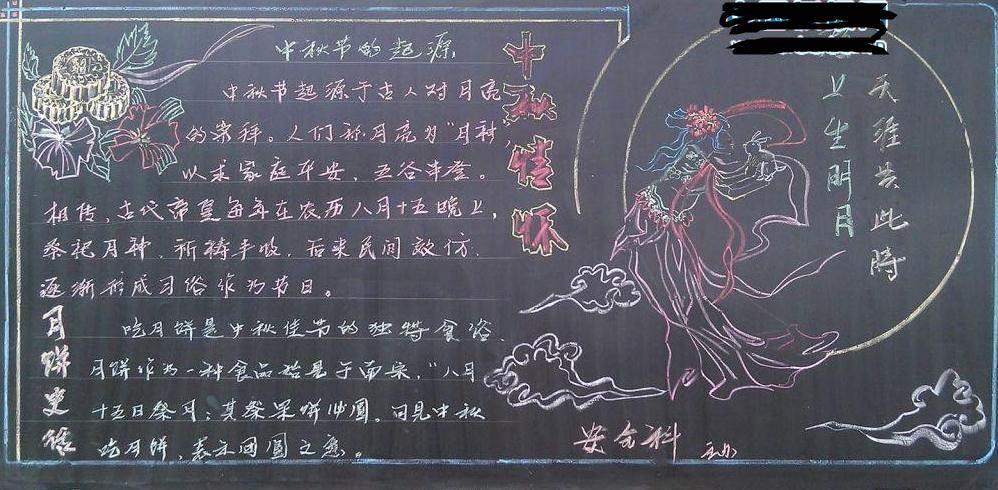 中秋节的起源
中秋节起源于古人对月亮
的崇拜。人们称月亮为"月神",
以求家庭平安、五谷丰登。
相传,古代帝皇每年在农历八月十五晚上,
祭祀月神,祈祷丰收,后来民间效仿.
逐渐形成习俗作为节日。
月饼史话
吃月饼是中秋佳节的独特食俗.
月饼作为一种食品始是于南宋,"八月
十五日祭月:其祭果饼必圆。可见中秋
吃月饼,表示团圆之意。
中秋情怀
上生明月
天涯共此時
安全科